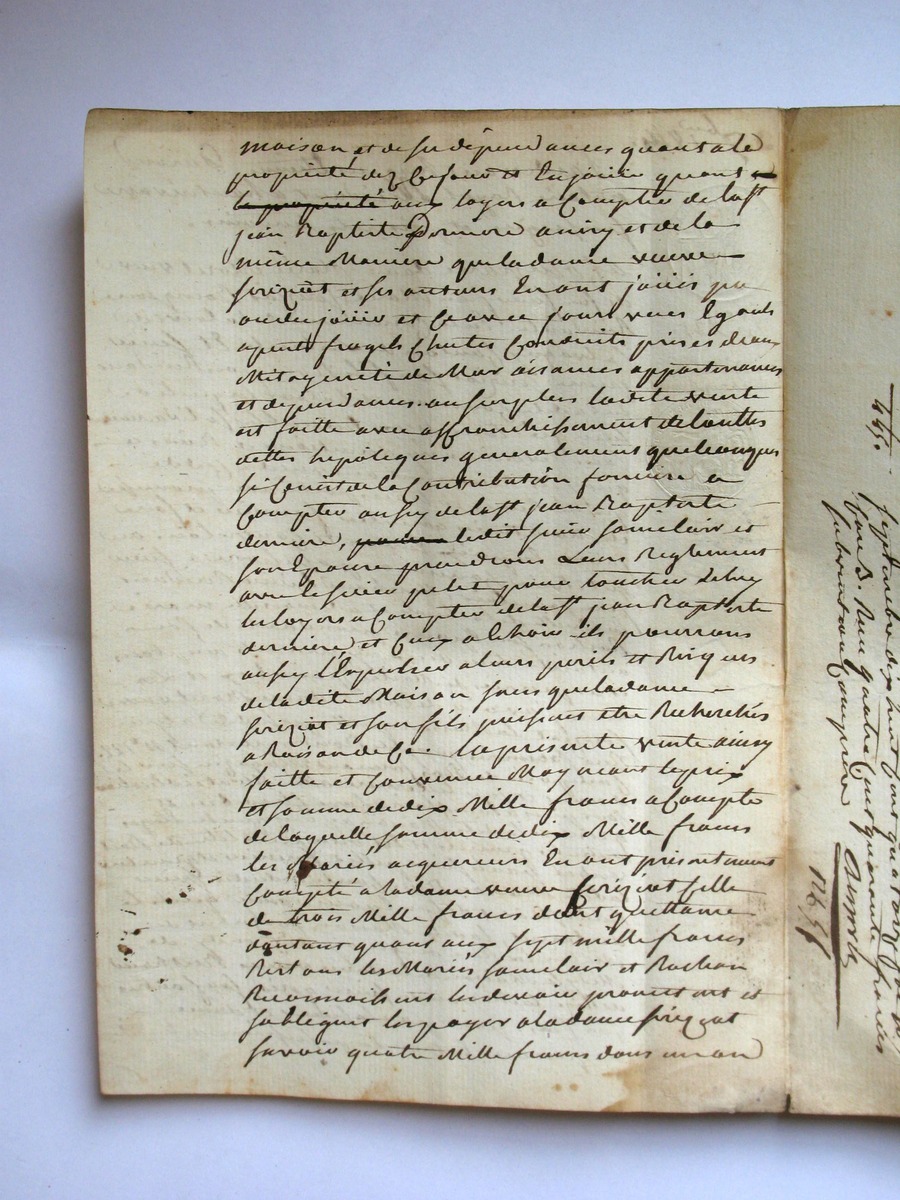 maison et de ses dépendances quant a la
propriété dez Ce jour et En jouir quant
la propriété aux loyers a Compter de la St
jean Baptiste Derniere ainsy et de la
même Maniere que la dame veuve
et ses auteurs En ont jouiis pu
ou du jouiir et Ce avec jours vues Egouts
Chutes Conduits prises deaux
Mitoyenneté de Mur aisances appartenances
et dependances. au surplus ladite vente
est faitte avec affranchissement de touttes
dettes hypoteques generalement quelconques
si Ce nest de la Contribution fonciere a
Compter aussy de la St jean Baptiste
derniere, ledit sieur et
son Epouse prendrons Leurs Reglement
avec le sieur pour toucher de luy
les loyers a Compter de la St jean Baptiste
derniere et Ceux a Echoir ils pourrons
aussy l'Expulser a leurs perils et Risques
de la dite Maison sans que la dame
et son fils puissent etre Recherchés
a Raison de Ce. la presente vente ainsy
faitte et Convenue Moyenant le prix
et somme de dix Mille francs a Compte
de laquelle somme de dix Mille francs
les Mariés acquereurs En ont présentement
Compté a la dame veuve Celle
de trois Mille francs dont quittance
dautant quant aux sept mille francs
Restans les Mariés et
Reconnoissent les devoir promettent et
sobligent les payer a la dame
savoir quatre Mille francs dans un an
septembre dix huit Cent quatorze
Reçu quatre Cent quarante francs
subvention Comprise